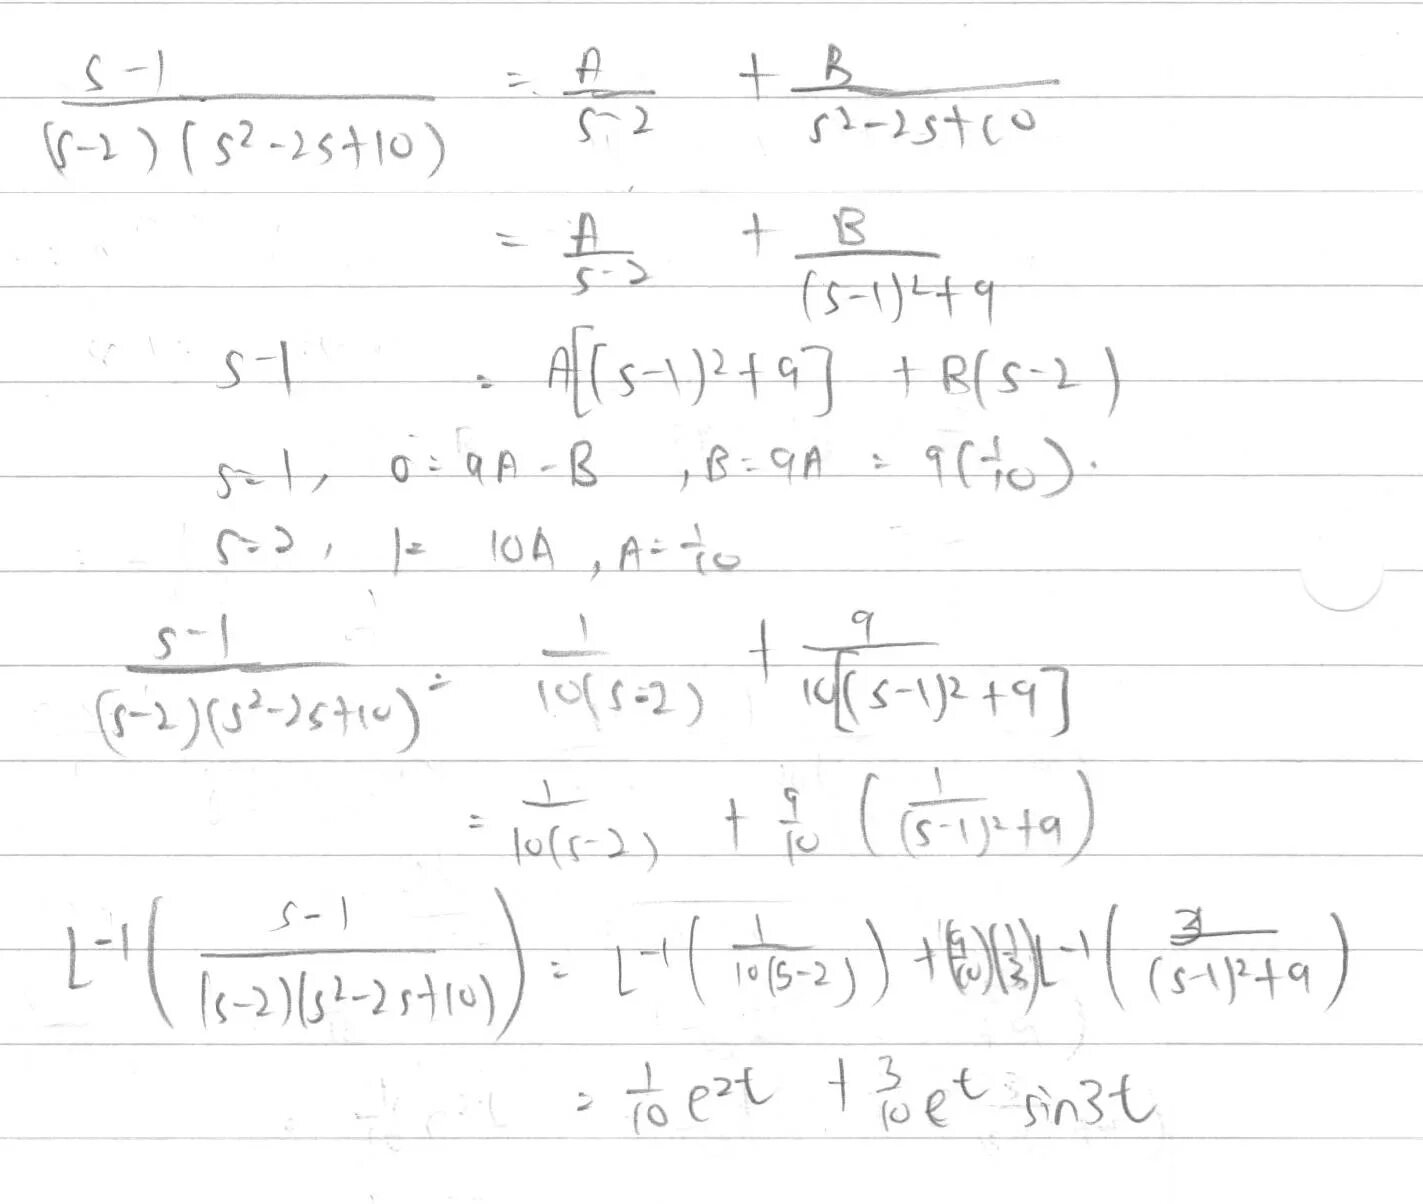 (s-1)/((s-2)(s²-2s+10)) = A/(s-2) + B/(s²-2s+10)
= A/(s-2) + B/((s-1)²+9)
s-1 = A[(s-1)²+9] + B(s-2)
s=1, 0=9A-B , B=9A = 9(1/10).
s=2, 1= 10A , A=1/10
(s-1)/((s-2)(s²-2s+10)) = 1/(10(s-2)) + 9/(10[(s-1)²+9])
= 1/(10(s-2)) + 9/10 (1/((s-1)²+9))
L⁻¹((s-1)/((s-2)(s²-2s+10))) = L⁻¹(1/(10(s-2))) + (9/10)(1/3)L⁻¹(3/((s-1)²+9))
= 1/10 e^2t + 3/10 e^t sin3t